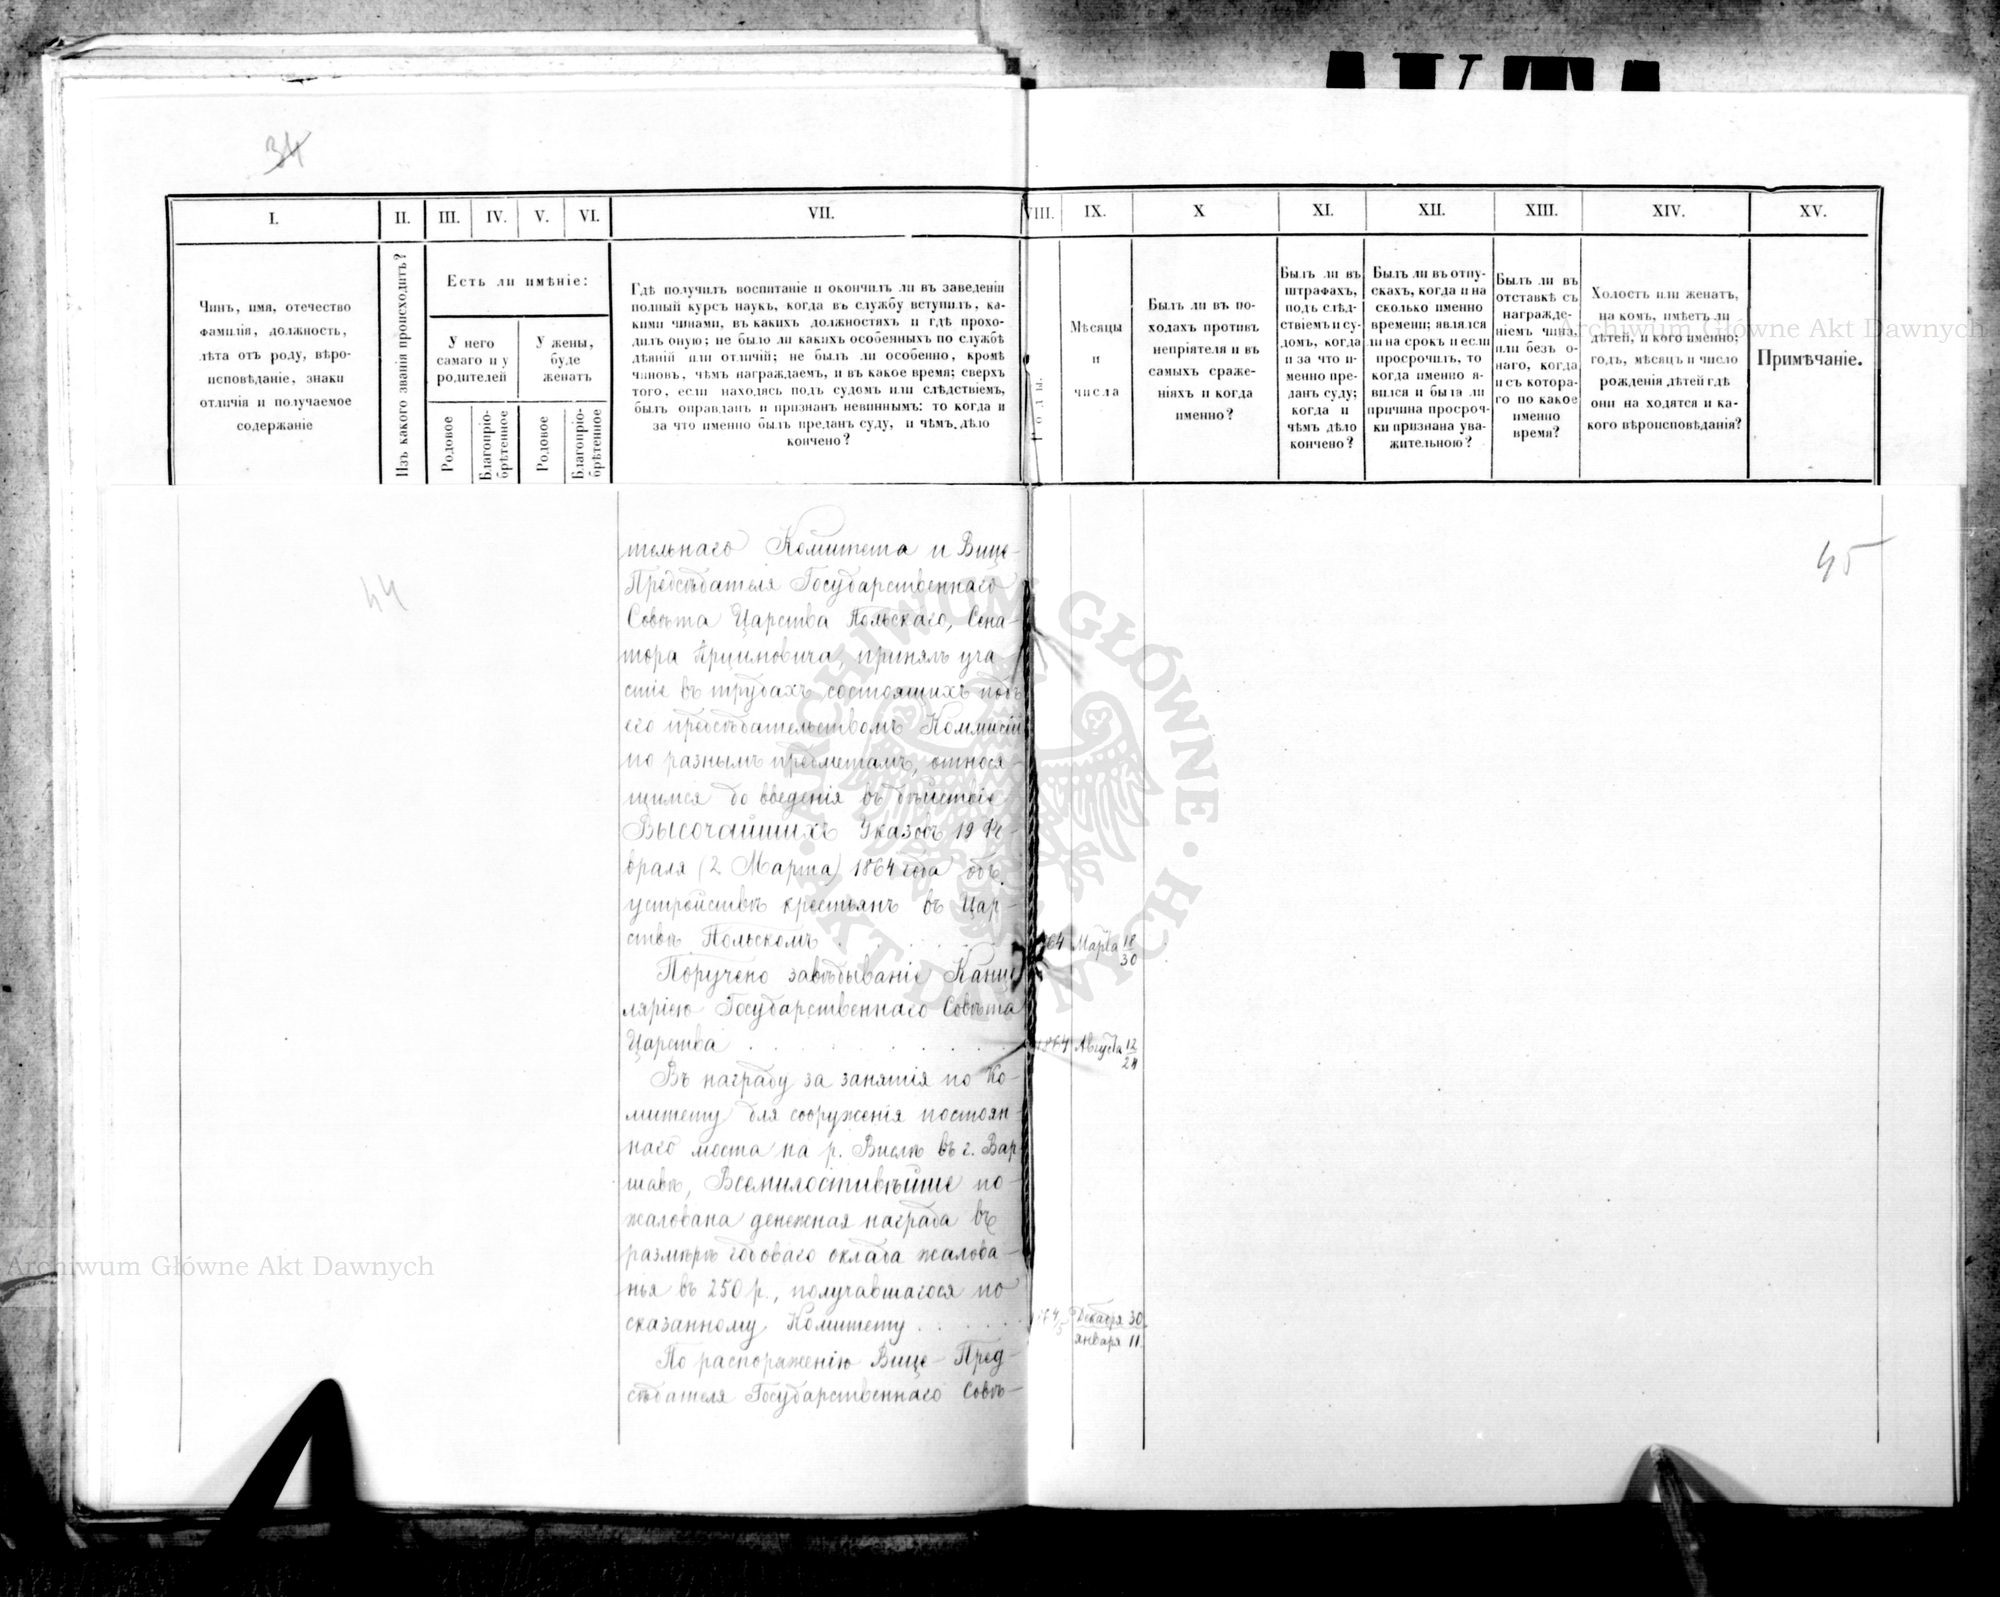 34
I.
II.
III.
IV.
V.
VI.
VII.
VIII.
IX.
X
XI.
XII.
XIII.
XIV.
XV.
Чинъ, имя, отечество
фамилія, должность,
лѣта отъ роду, вѣро-
исповѣданіе, знаки
отличія и получаемое
содержаніе
Изъ какого званія происходитъ?
Есть ли имѣніе:
У него
самаго и у
родителей
У жены,
буде
женатъ
Родовое
Благопріо-
брѣтенное
Родовое
Благопріо-
брѣтенное
Гдѣ получилъ воспитаніе и окончилъ ли въ заведеніи
полный курсъ наукъ, когда въ службу вступилъ, ка-
кими чинами, въ какихъ должностяхъ и гдѣ прохо-
дилъ оную; не было ли какихъ особенныхъ по службѣ
дѣяній или отличій; не былъ ли особенно, кромѣ
чиновъ, чѣмъ награждаемъ, и въ какое время; сверхъ
того, если находясь подъ судомъ или слѣдствіемъ,
былъ оправданъ и признанъ невиннымъ: то когда и
за что именно былъ преданъ суду, и чѣмъ дѣло
кончено?
Годы.
Мѣсяцы
и
числа
Былъ ли въ по-
ходахъ противъ
непріятеля и въ
самыхъ сраже-
ніяхъ и когда
именно?
Былъ ли въ
штрафахъ,
подъ слѣд-
ствіемъ и су-
домъ, когда
и за что и-
менно пре-
данъ суду;
когда и
чѣмъ дѣло
кончено?
Былъ ли въ отпу-
скахъ, когда и на
сколько именно
времени; являлся
ли на срокъ и если
просрочилъ, то
когда именно я-
вился и была ли
причина просроч-
ки признана ува-
жительною?
Былъ ли въ
отставкѣ съ
награжде-
ніемъ чина,
или безъ о-
наго, когда
и съ котора-
го по какое
именно
время?
Холостъ или женатъ,
на комъ, имѣетъ ли
дѣтей, и кого именно;
годъ, мѣсяцъ и число
рожденія дѣтей гдѣ
они на ходятся и ка-
кого вѣроисповѣданія?
Примѣчаніе.
Archiwum Główne Akt Dawnych
44
45
тельнаго Комитета и Вице-
Предсѣдателя Государственнаго
Совѣта Царства Польскаго, Сена-
тора Арцимовича, принялъ уча-
стіе въ трудахъ состоящихъ подъ
его предсѣдательствомъ Коммисій
по разнымъ предметамъ, относя-
щимся до введенія въ дѣйствіе
Высочайшихъ Указовъ 19 Фе-
враля (2 Марта) 1864 года объ
устройствѣ крестьянъ въ Цар-
ствѣ Польскомъ . . . . . 64 Марта 18/30
Поручено завѣдываніе Канце
ляріею Государственнаго Совѣта
Царства . . . . . . . . 1864 Августа 12/24
Въ награду за занятія по Ко-
митету для сооруженія постоян-
наго моста на р. Вислѣ въ г. Вар-
шавѣ, Всемилостивѣйше по-
жалована денежная награда въ
размѣрѣ годоваго оклада жалова-
нья въ 250 р., получавшагося по
сказанному Комитету . . . . . 1864/5 Декабря 30
января 11
По распоряженію Вице-Пред-
сѣдателя Государственнаго Совѣ-
ARCHIWUM GŁÓWNE AKT DAWNYCH
Archiwum Główne Akt Dawnych